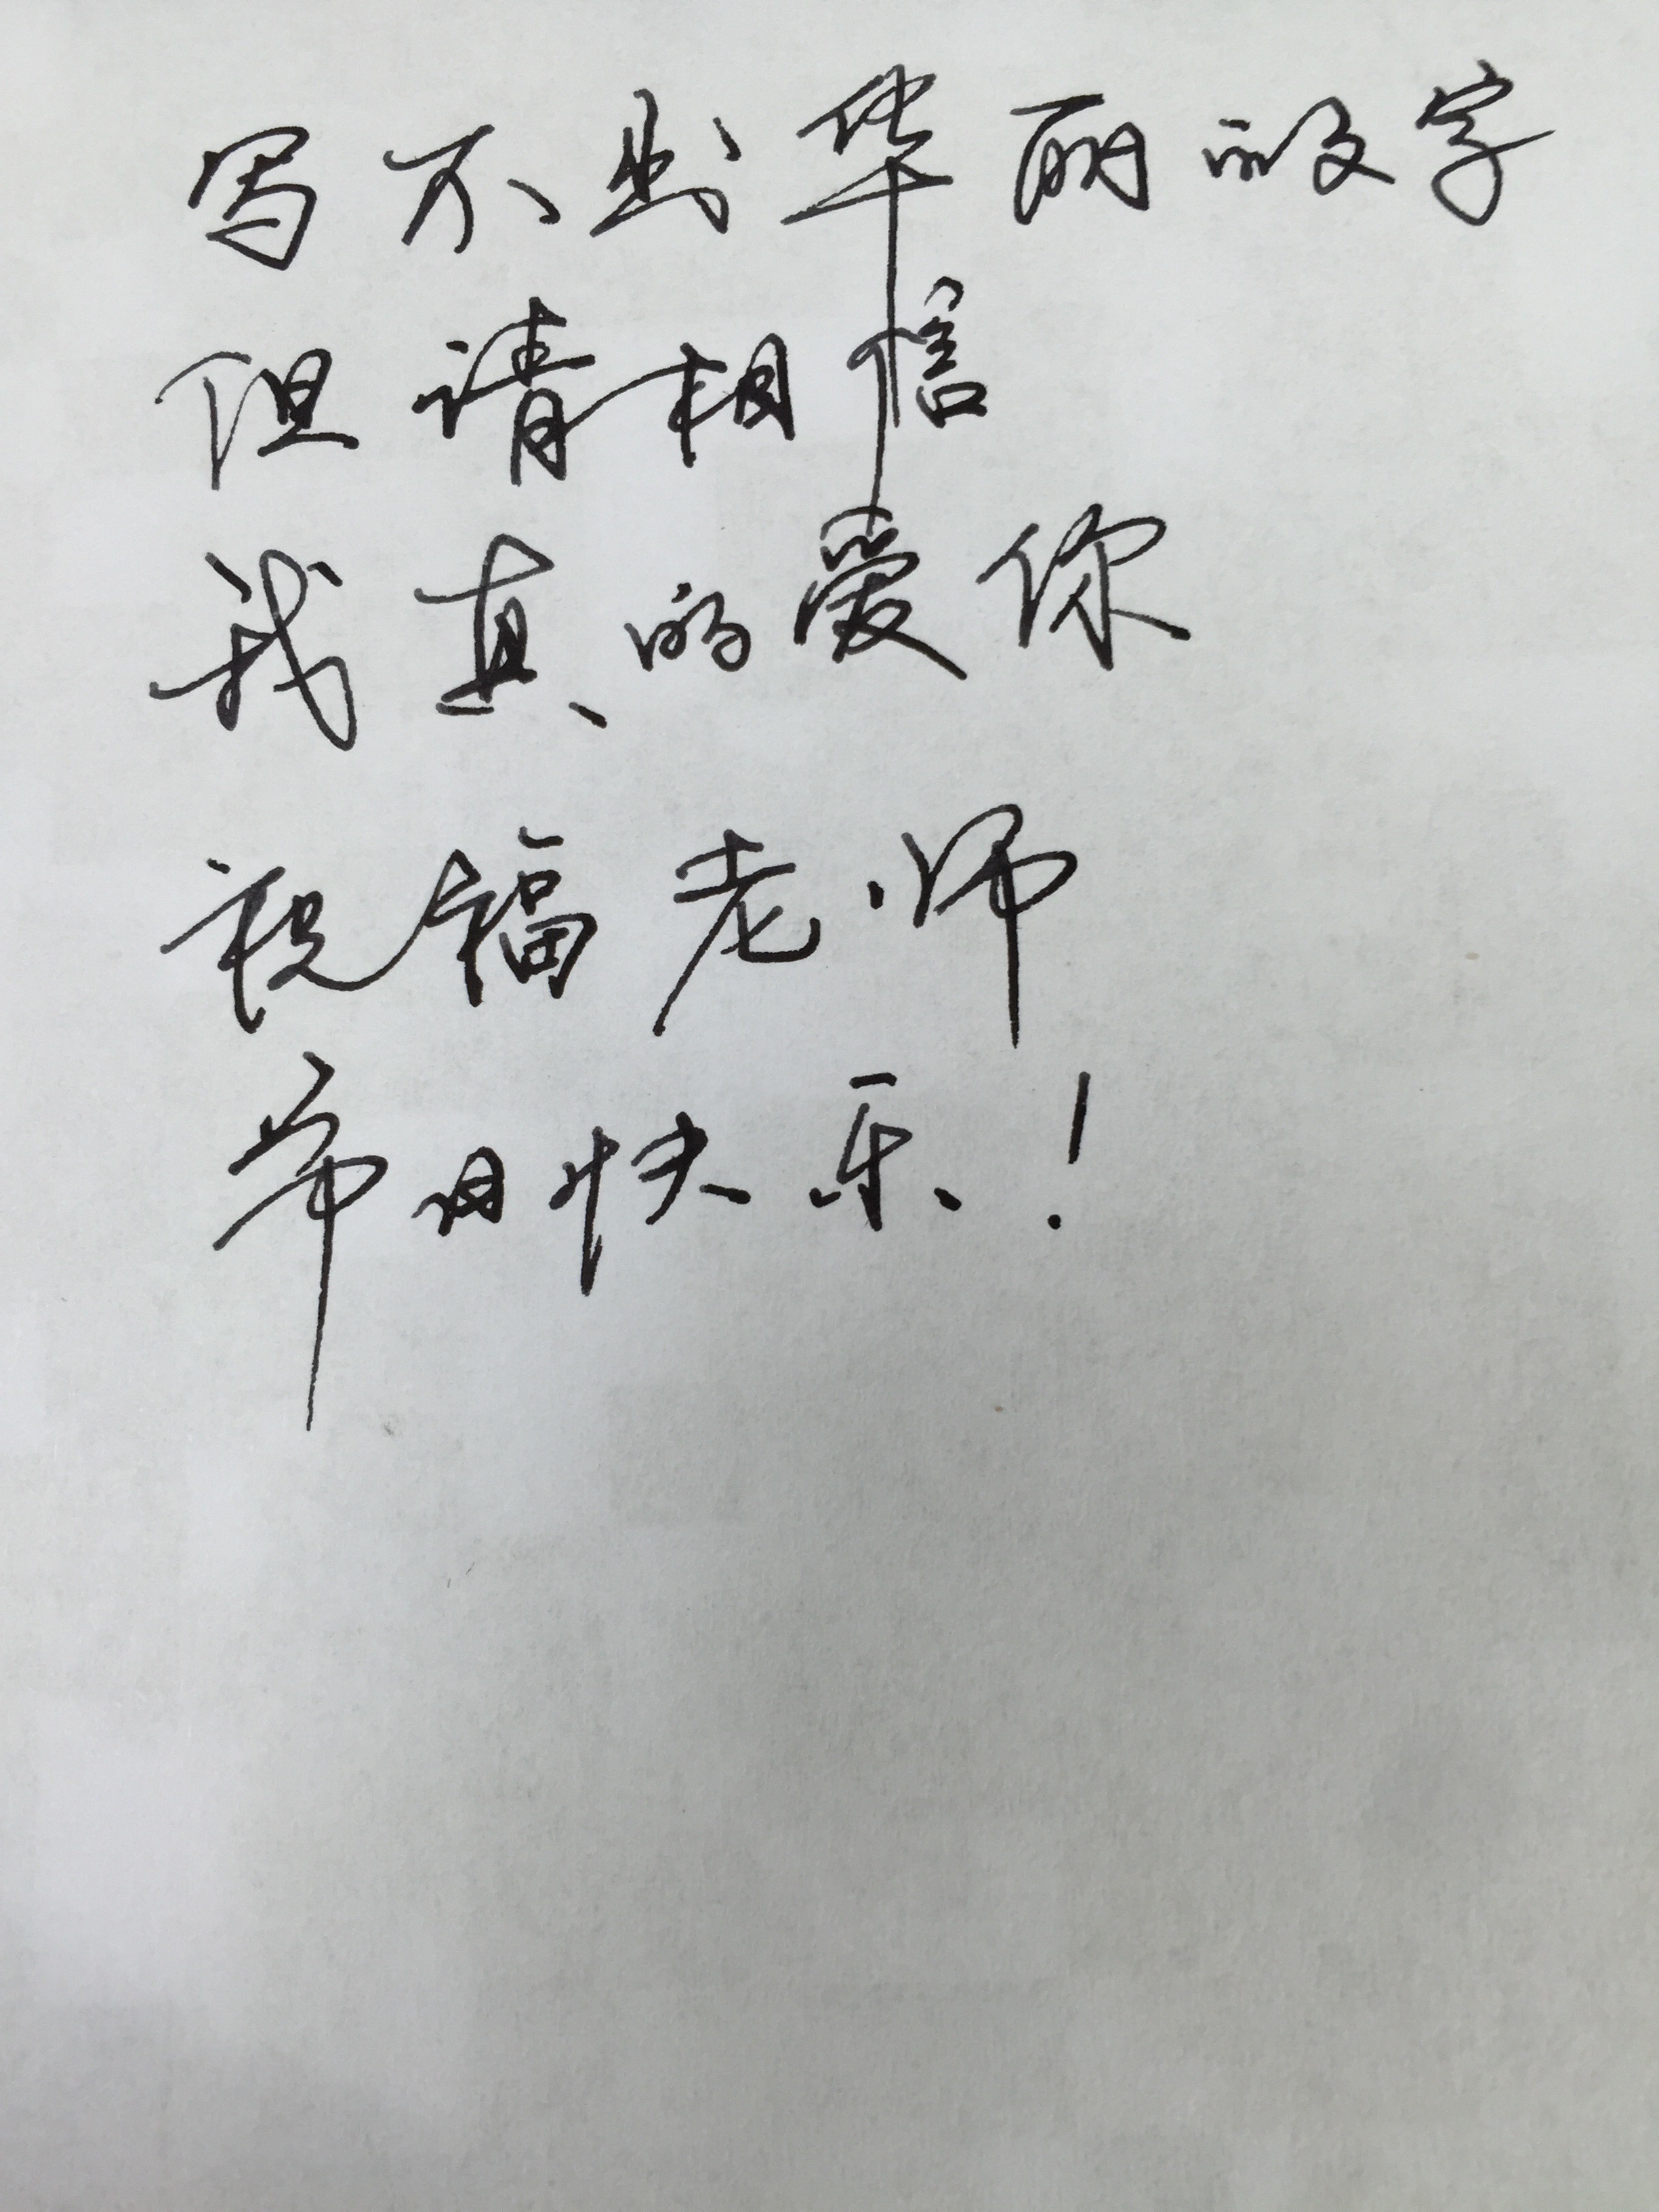 写不出华丽的文字
但请相信
我真的爱你
祝福老师
节日快乐！